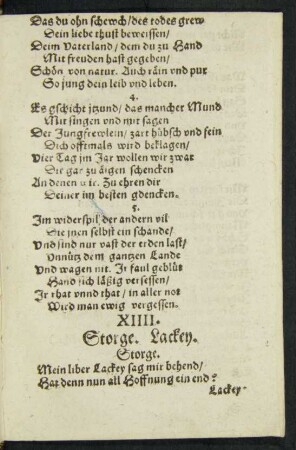 Das du ohn schewch/des todes grew
Dein liebe thust beweissen/
Deim Vaterland/dem du zu Hand
Mit freuden hast gegeben/
Schön von natur. Auch räin vnd pur
So jung dein leib vnd leben.
4.
Es gschicht jtzund/das mancher Mund
Mit singen vnd mit sagen
Der Jungfrewlein/zart hübsch vnd fein
Dich offtmals wird beklagen/
Vier Tag jm Jar wollen wir zwar
Dir gar zu äigen schencken
An denen wir. Zu ehren dir
Deiner im besten gdencken.
5.
Im widerspil der andern vil
Die jnen selbst ein schande/
Vnd sind nur vast der erden last/
Vnnütz dem gantzen Lande
Vnd wagen nit. Ir faul geblüt
Hand sich läßig versessen/
Ir rhat vnnd that/in aller not
Wird man ewig vergessen.
XIIII.
Storge. Lackey.
Storge.
Mein liber Lackey sag mir behend/
Hat denn nun all Hoffnung ein end?
Lackey.